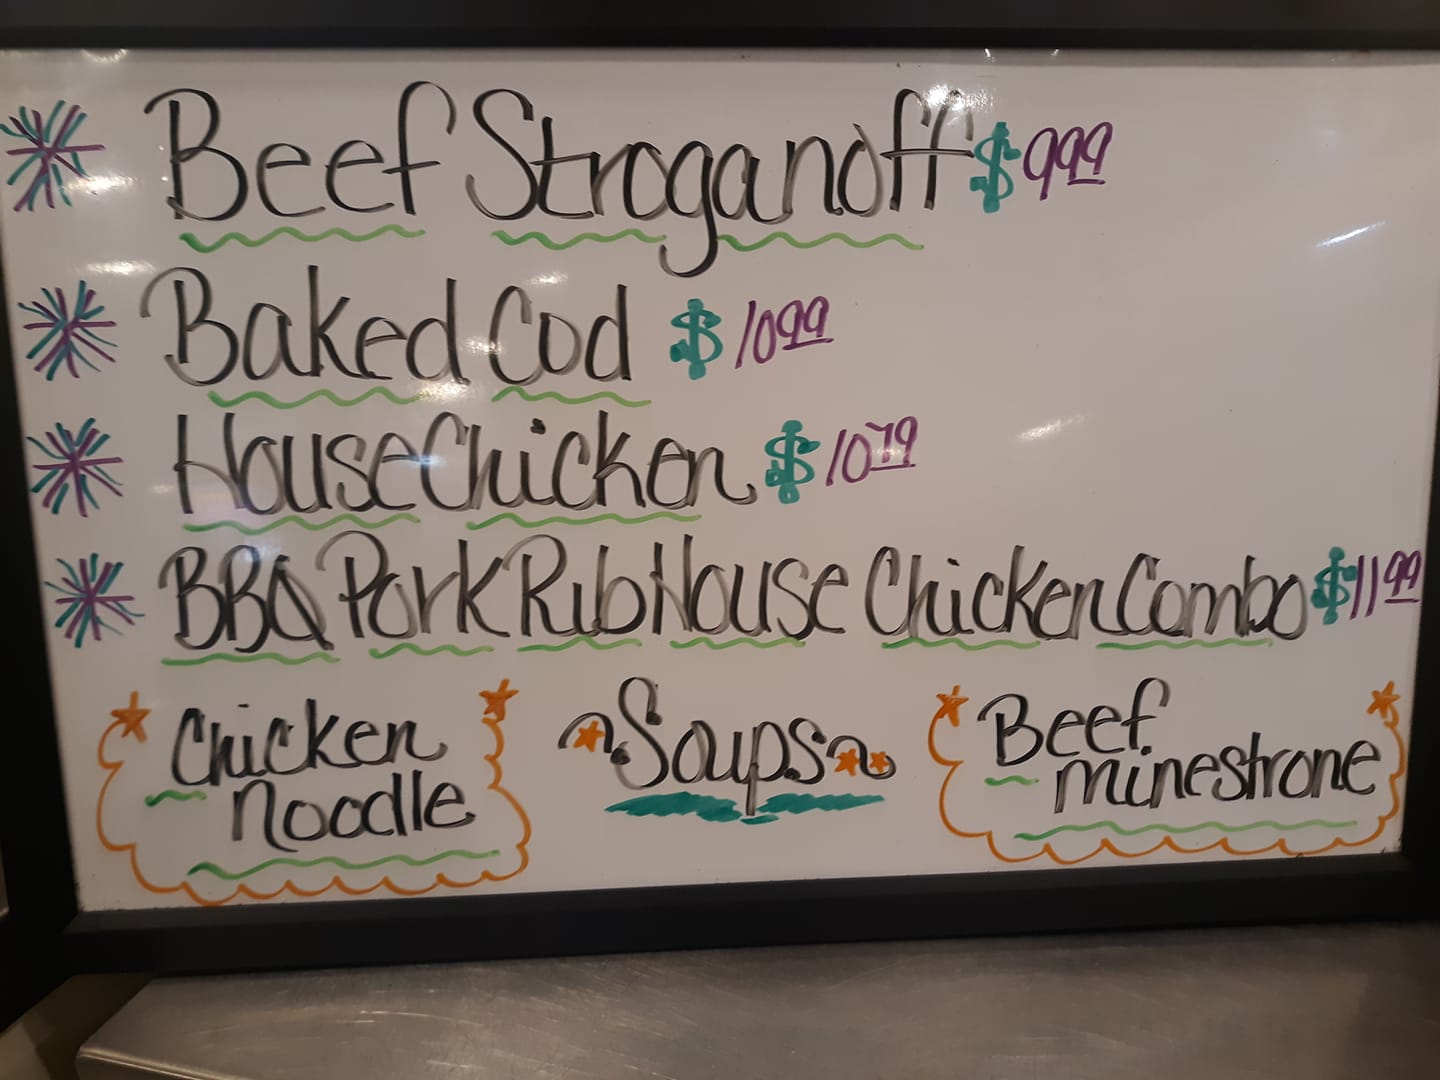 Beef Stroganoff $9.99
Baked Cod $10.99
House Chicken $10.79
BBQ Pork Rib House Chicken Combo $11.99
Soups
Chicken
noodle
Beef
minestrone